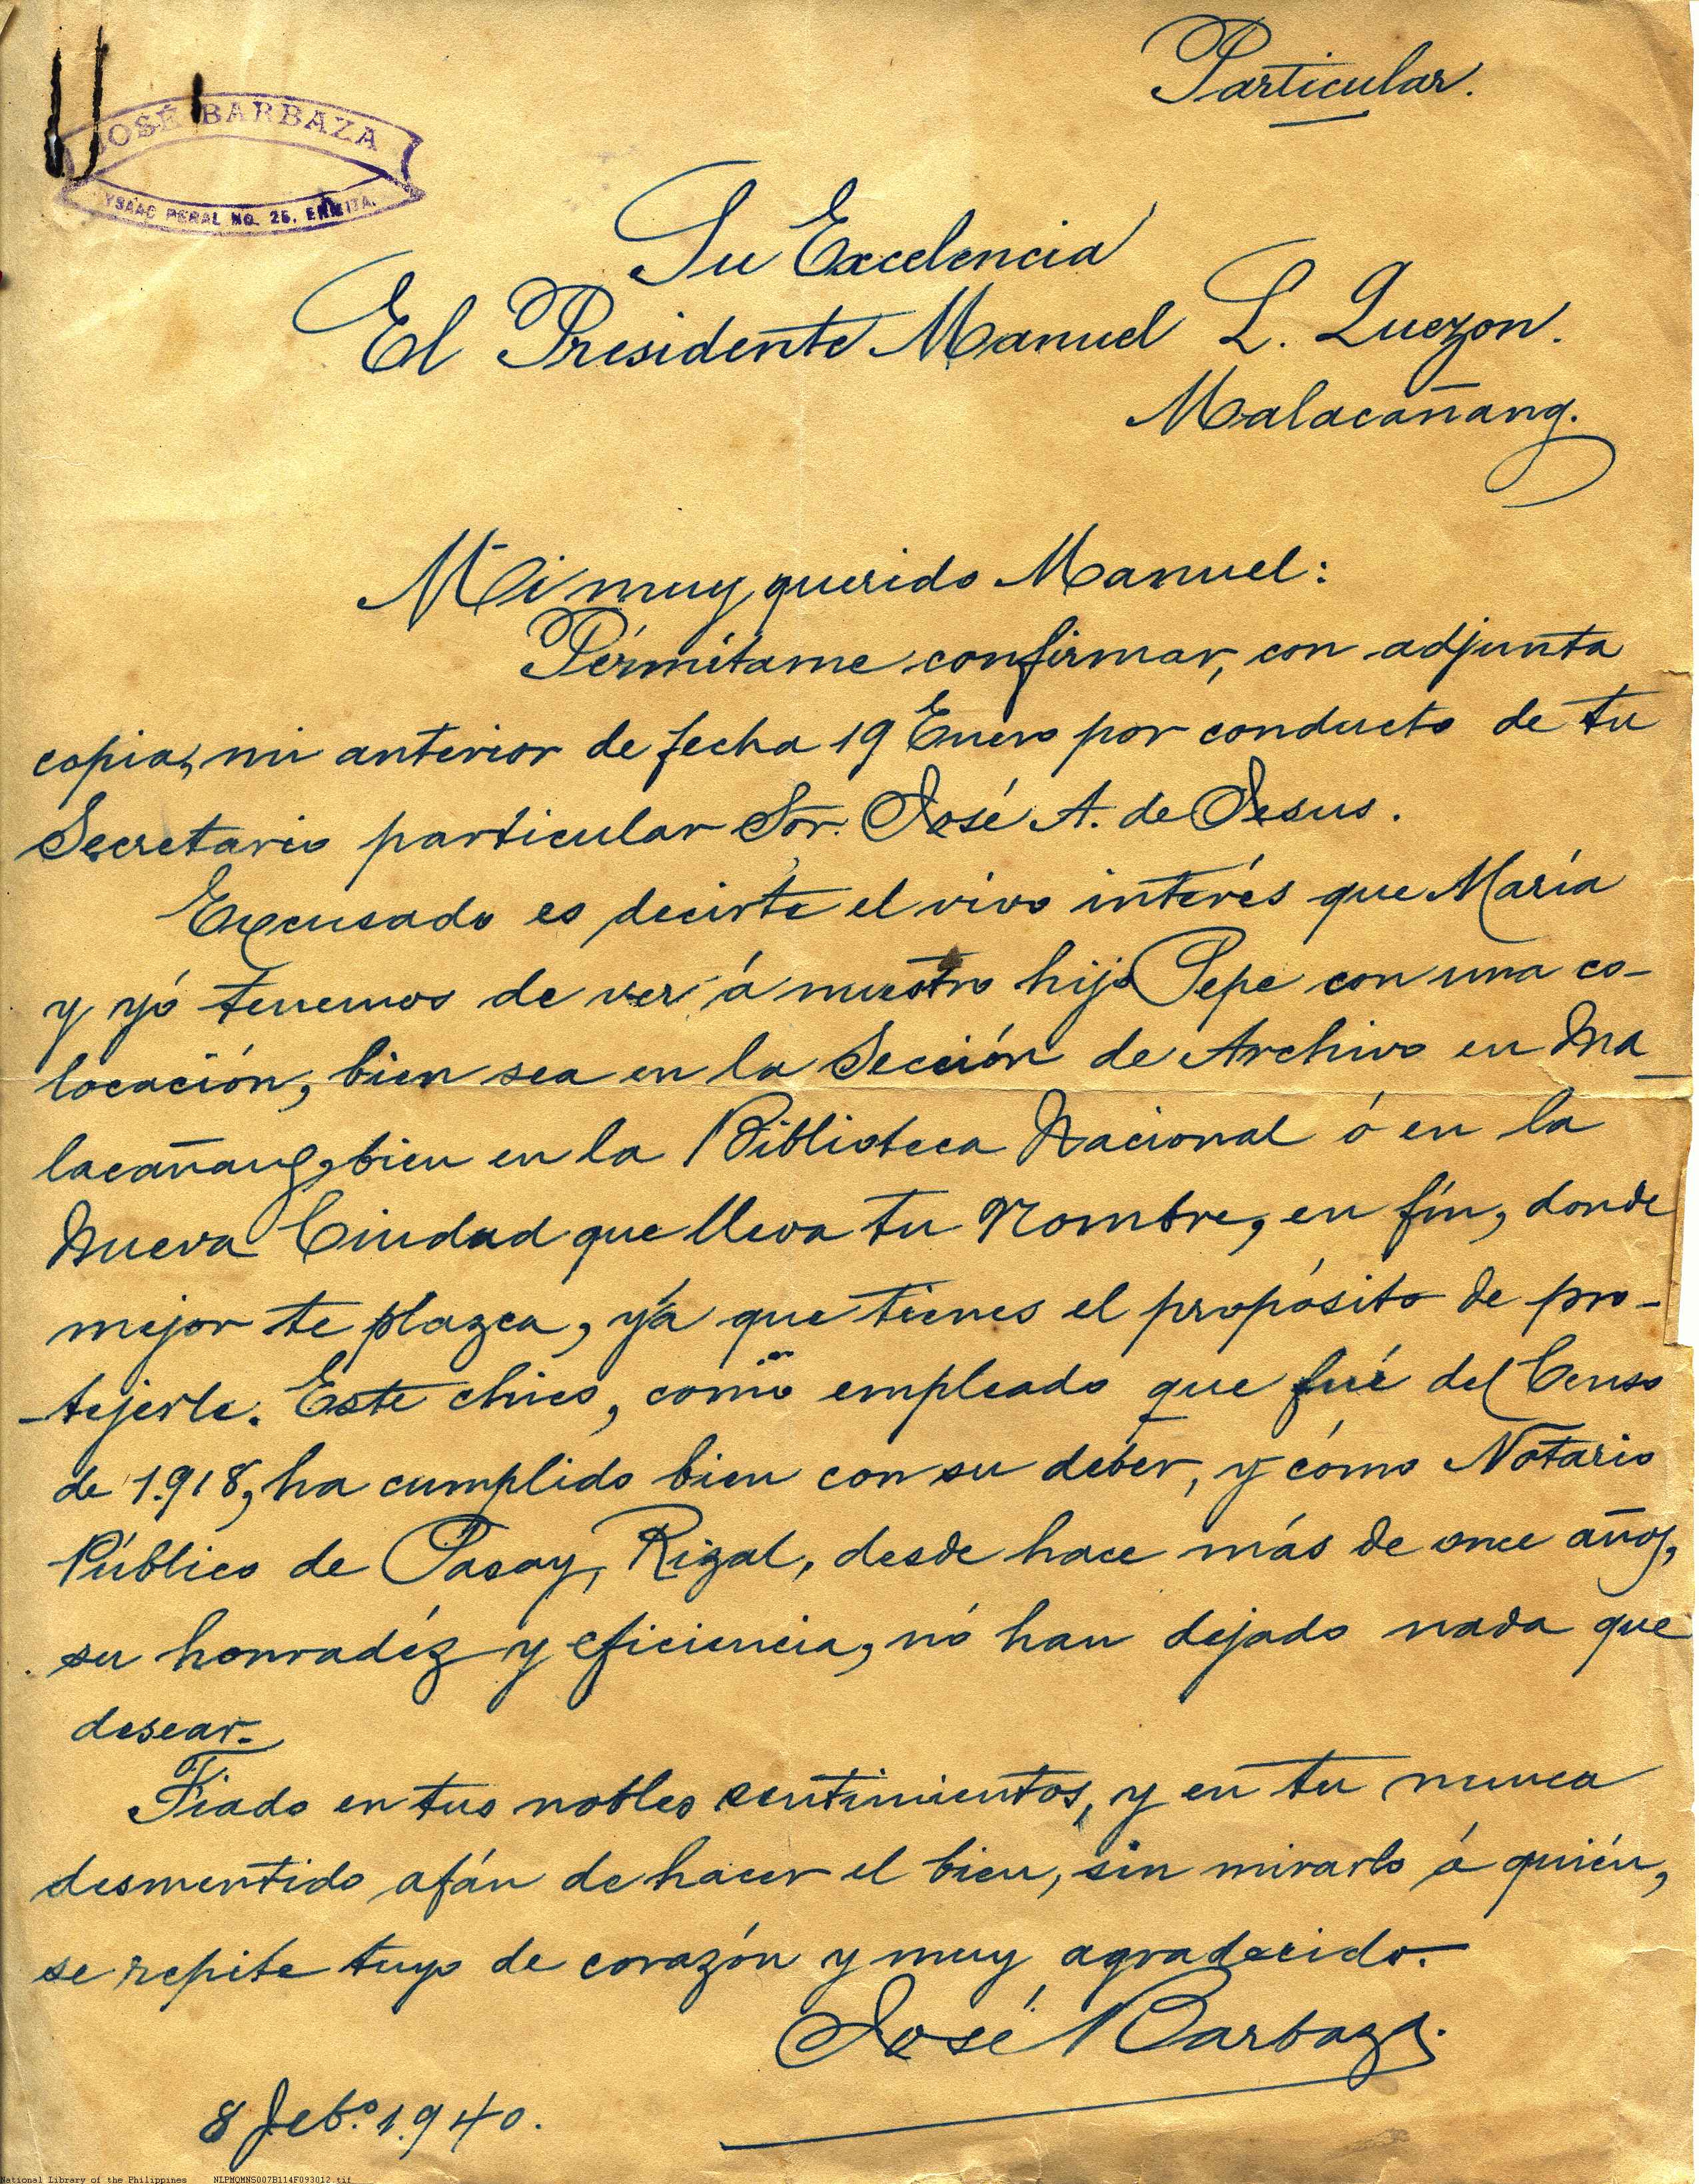 Particular.
JOSÉ BARBAZA
YSAAC PERAL NO. 25, ERMITA.
Su Excelencia
El Presidente Manuel L. Quezon.
Malacañang.
Mi muy querido Manuel:
Pérmitame confirmar, con adjunta
copia, mi anterior de fecha 19 Enero por conducto de tu
Secretario particular Sor. José A. de Jesus.
Excusado es decirte el vivo interés que María
y yó tenemos de ver á nuestro hijo Pepe con una co-
locación, bien sea en la Sección de Archivo en Ma-
lacañang, bien en la Biblioteca Nacional ó en la
Nueva Ciudad que lleva tu Nombre, en fín, donde
mejor te plazca, yá que tienes el propósito de pro-
-tejerle. Este chico, como empleado que fué del Censo
de 1.918, ha cumplido bien con su déber, y cómo Notario
Público de Pasay, Rizal, desde hace más de once años,
su honradéz y eficiencia, nó han dejado nada que
desear.-
Fiado en tus nobles sentimientos, y en tu nunca
desmentido afán de hacer el bien, sin mirarlo á quién,
se repite tuyo de corazón y muy agradecido.
José Barbaza.
8 Feb.o 1.940.
National Library of the Philippines NLPMQMNS007B114F093012.tif